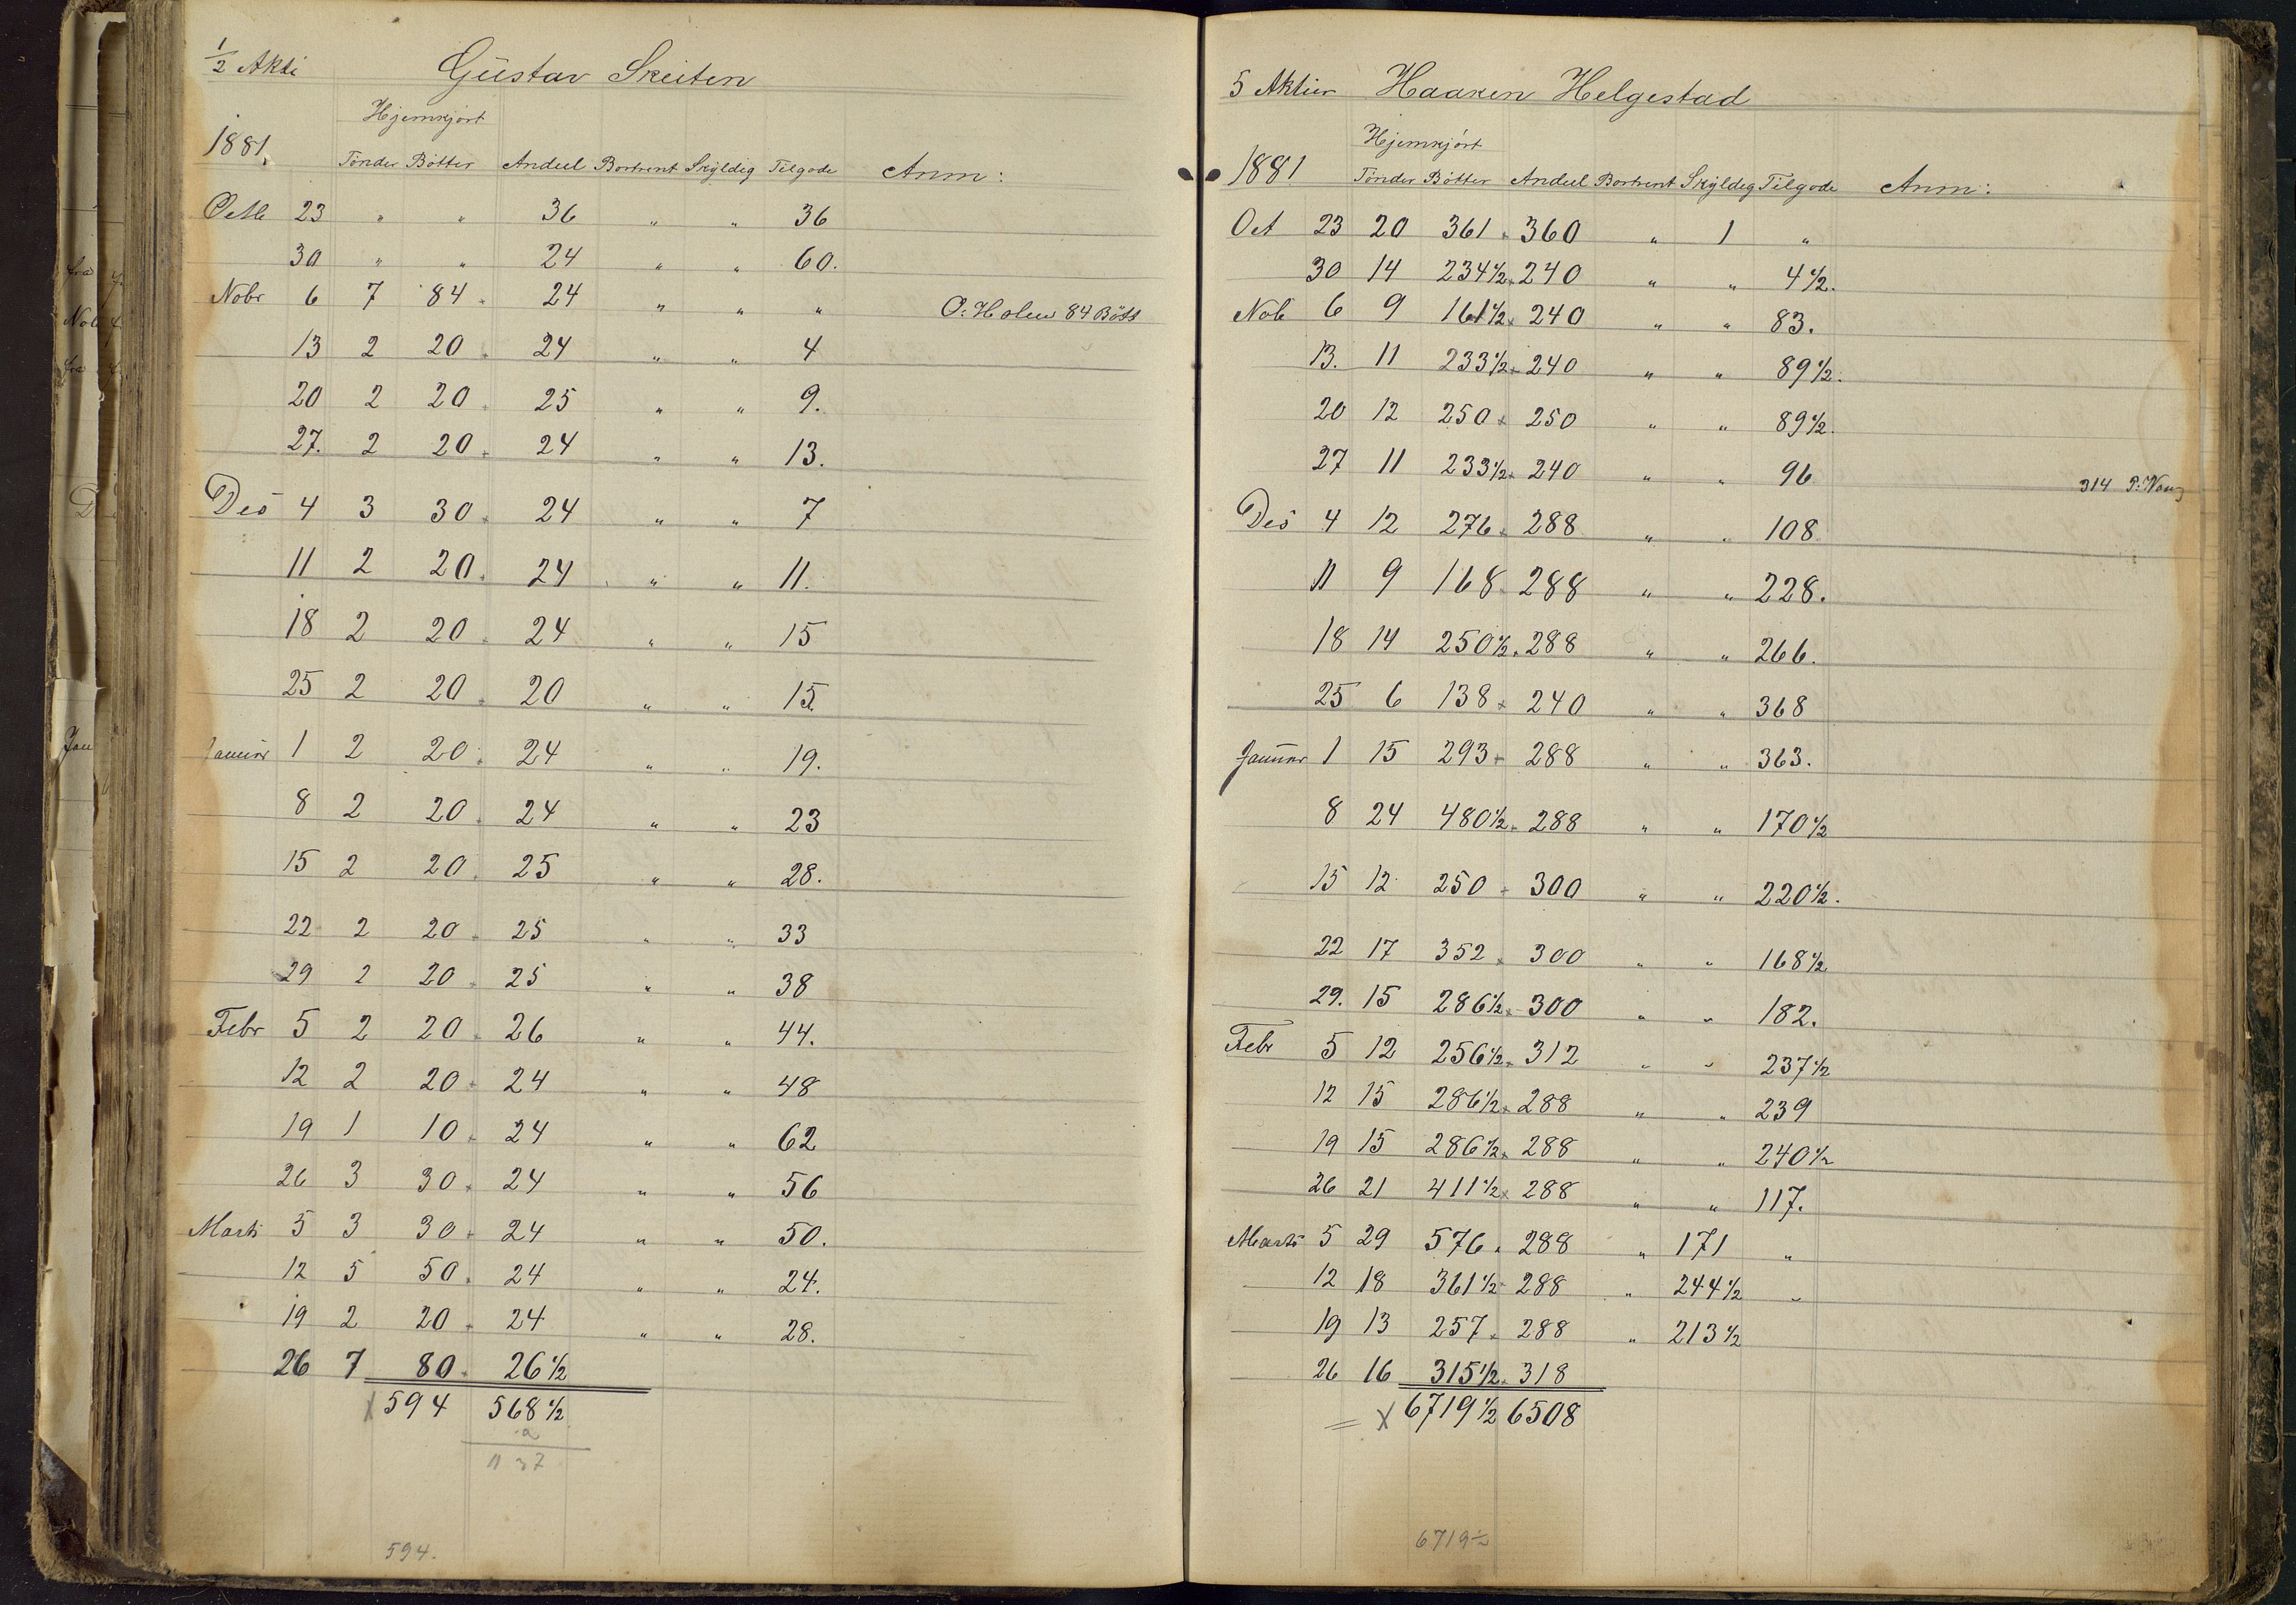 1/2 Akti Gustav Skeiten
Hjemkjört
1881. Tönder Bötter Andeel Bortrent Skyldig Tilgode Anm:
Octb 23 " " 36 " " 36
30 " " 24 " " 60.
Nobr 6 7 84 24 " " " O. Holen 84 Bött
13 2 20 24 " " 4
20 2 20 25 " " 9.
27. 2 20 24 " " 13.
Des 4 3 30 24 " " 7
11 2 20 24 " " 11.
18 2 20 24 " " 15
25 2 20 20 " " 15
Januar 1 2 20 24 " " 19.
8 2 20 24 " " 23
15 2 20 25 " " 28.
22 2 20 25 " " 33
29 2 20 25 " " 38
Febr 5 2 20 26 " " 44.
12 2 20 24 " " 48
19 1 10 24 " " 62
26 3 30 24 " " 56
Marts 5 3 30 24 " " 50.
12 5 50 24 " " 24.
19 2 20 24 " " 28.
26 7 80 26 1/2
x 594 568 1/2
2
1137
594.
5 Aktier Haaken Helgestad
Hjemkjört
1881 Tönder Bötter Andeel Bortrent Skyldig Tilgode Anm:
Oct 23 20 361 360 " 1 "
30 14 234 1/2 240 " " 4 1/2.
Nob 6 9 161 1/2 240 " " 83.
13. 11 233 1/2 240 " " 89 1/2.
20 12 250 250 " " 89 1/2.
27 11 233 1/2 240 " " 96 314
Des 4 12 276 288 " " 108
11 9 168 288 " " 228.
18 14 250 1/2 288 " " 266.
25 6 138 240 " " 368
Januar 1 15 293 288 " " 363.
8 24 480 1/2 288 " " 170 1/2
15 12 250 300 " " 220 1/2.
22 17 352 300 " " 168 1/2
29. 15 286 1/2 300 " " 182.
Febr 5 12 256 1/2 312 " " 237 1/2
12 15 286 1/2 288 " " 239
19 15 286 1/2 288 " " 240 1/2
26 21 411 1/2 288 " " 117.
Marts 5 29 576 288 " 171 "
12 18 361 1/2 288 " 244 1/2 "
19 13 257 288 " 213 1/2
26 16 315 1/2 318
= x 6719 1/2 6508
6719 1/2